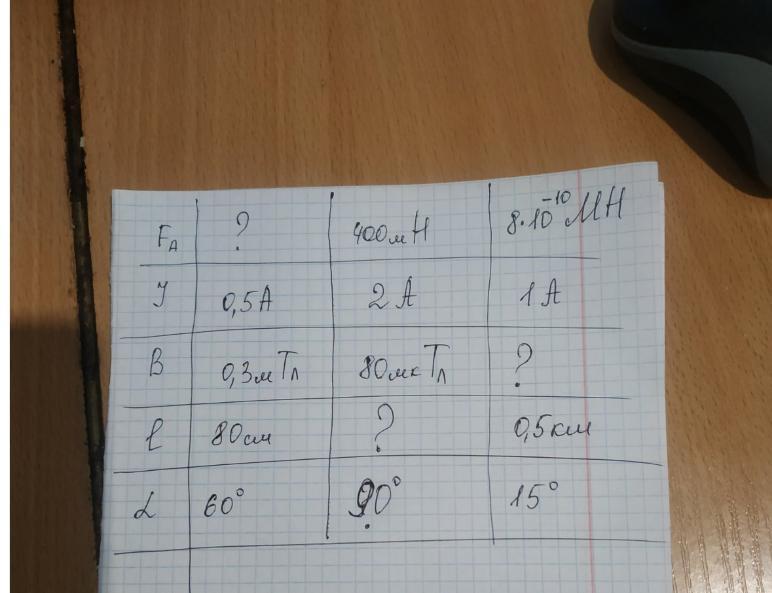 Fд ? 400мН 8·10⁻¹⁰ МН
I 0,5А 2 А 1 А
B 0,3мТл 80мкТл ?
l 80см ? 0,5км
α 60° 90° 15°